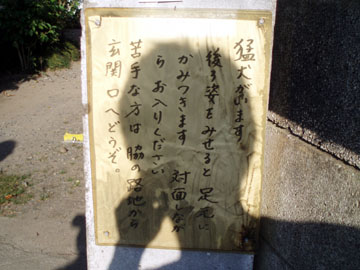 猛犬がいます。
後ろ姿をみせると足元に
かみつきます 対面しなが
ら お入りください
苦手な方は 脇の露地から
玄関口へどうぞ。